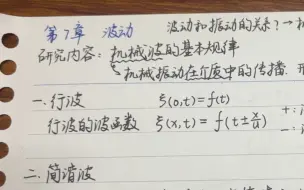 第7章 波动 波动和振动的关系?→
研究内容: 机械波的基本规律
机械振动在介质中的传播.
一.行波 ξ(0,t)=f(t)
行波的波函数 ξ(x,t)=f(t±x/u)
二.简谐波